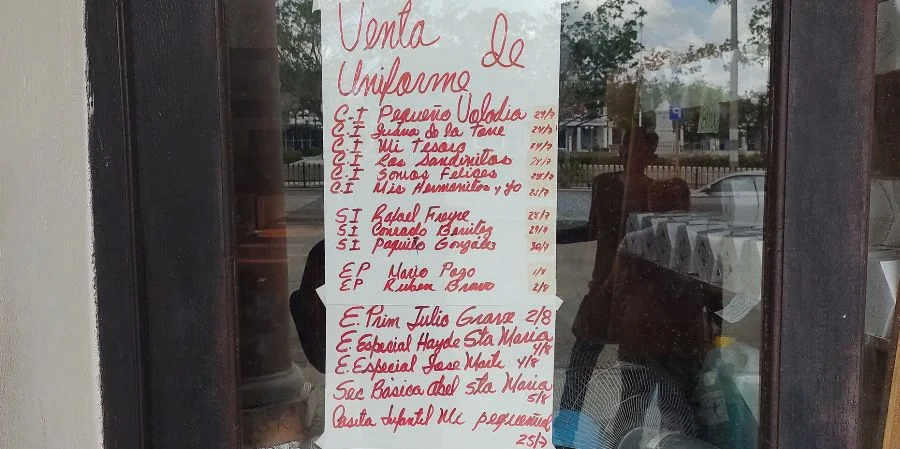 Venta de
Uniforme
C.I Pequeño Volodia 24/7
C.I Juana de la Torre 24/7
C.I Mi Tesoro 24/7
C.I Los Sandinitos 24/7
C.I Somos Felices 25/7
C.I Mis Hermanitos y yo 25/7
SI Rafael Freyre 28/7
SI Conrado Benitez 29/7
SI Paquito González 30/7
EP Mario Pozo 1/8
EP Ruben Bravo 2/8
E. Prim Julio Grave 2/8
E. Especial Hayde Sta Maria
4/8
E. Especial Jose Marti 4/8
Sec Básica Abel sta Maria
5/8
Casita Infantil Mi pequeñud
25/7